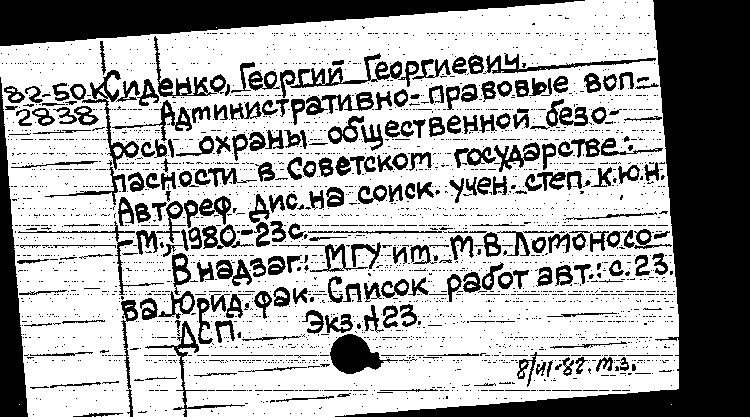 82-50.К Сиденко, Георгий Георгиевич.
2838 Административно-правовые воп-
росы охраны общественной безо-
пасности в Советском государстве.:
Автореф. дис. на соиск. учен. степ. к.ю.н.
-М., 1980.-23с.
В надзаг.: МГУ им. М.В. Ломоносо-
ва. Юрид. фак. Список работ авт.: с. 23.
ДСП. Экз. №23.
8/VI-82. т.з.